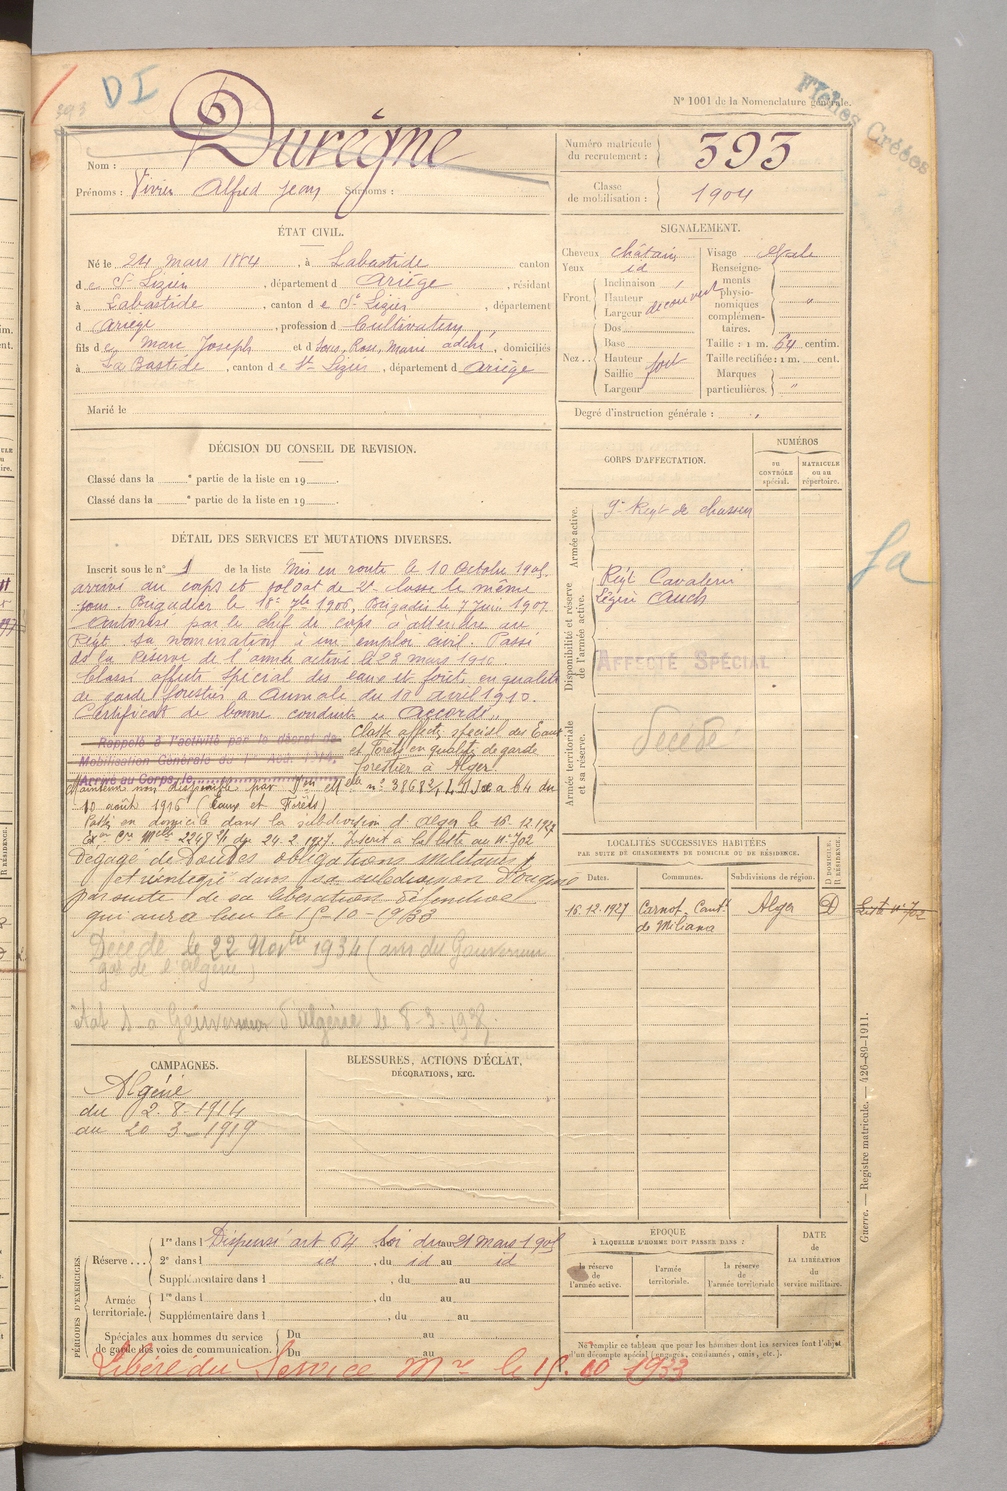 DI
393
Fiches Créées
N° 1001 de la Nomenclature générale.
Nom : Durègne
Prénoms : Alfred Jean Surnoms :
Numéro matricule du recrutement : 393
Classe de mobilisation : 1904
ÉTAT CIVIL.
Né le 24 mars 1884, à Labastide canton
de St Lizier, département d Ariège, résidant
à Labastide, canton de St Lizier, département
d Ariège, profession d Cultivateur
fils de Marc Joseph et d Rose, Marie, domiciliés
à La Bastide, canton de St Lizier, département d Ariège
Marié le
SIGNALEMENT.
Cheveux châtain
Yeux id
Front. Inclinaison
Hauteur découvert
Largeur
Nez. Dos
Base
Hauteur fort
Saillie
Largeur
Visage ovale
Renseignements physionomiques complémentaires. "
Taille : 1 m. 64 centim.
Taille rectifiée : 1 m. cent.
Marques particulières. "
Degré d'instruction générale :
DÉCISION DU CONSEIL DE REVISION.
Classé dans la e partie de la liste en 19 .
Classé dans la e partie de la liste en 19 .
CORPS D'AFFECTATION.
NUMÉROS
au CONTRÔLE spécial.
MATRICULE ou au répertoire.
Armée active.
9e Regt de chasseurs
Disponibilité et réserve de l'armée active.
Regt Cavalerie
Légère Auch
AFFECTÉ SPÉCIAL
Armée territoriale et sa réserve.
Décédé
DÉTAIL DES SERVICES ET MUTATIONS DIVERSES.
Inscrit sous le n° 1 de la liste Mis en route le 10 Octobre 1905.
arrivé au corps et soldat de 2e classe le même
jour. Brigadier le 18 7bre 1906, Brigadier le 7 Juin 1907
autorisé par le chef de corps à attendre au
Régt sa nomination à un emploi civil. Passé
ds la Réserve de l'armée active le 23 mars 1910
Classé affecté spécial des eaux et forêts en qualité
de garde forestier à Aumale du 10 avril 1910.
Certificat de bonne conduite " Accordé "
Rappelé à l'activité par le décret de
Mobilisation Générale du 1er Août 1914,
Arrivé au Corps le
Classé affecté spécial des Eaux
et Forêts en qualité de garde
forestier à Alger
Maintenu non disponible par Don Melle n° 38683
10 août 1916 (Eaux et Forêts)
Passé en domicile dans la subdivision d'Alger le 16.12.1927
Exon Cre Melle 2248 2/1 du 24.2.1927. Inscrit à la liste au N° 702
Dégagé de toutes obligations militaires
et réintégré dans sa subdivision d'origine
par suite de sa libération définitive
qui aura lieu le 15-10-1933
Décédé le 22 Novbre 1934 (avis du Gouverneur
gal de l'Algérie)
Gouverneur d'Algérie le 8-3-1935
LOCALITÉS SUCCESSIVES HABITÉES
PAR SUITE DE CHANGEMENTS DE DOMICILE OU DE RÉSIDENCE.
Dates. Communes. Subdivisions de région. D DOMICILE. R RÉSIDENCE.
16.12.1927 Carnot, Cant. de Miliana Alger D
Liste N° 702
CAMPAGNES.
Algérie
du 2-8-1914
au 20-3-1919
BLESSURES, ACTIONS D'ÉCLAT,
DÉCORATIONS, ETC.
PÉRIODES D'EXERCICES
Réserve... 1re dans l Dispensé art 64 loi du 21 mars 1905
2e dans l id, du id au id
Supplémentaire dans l , du au
Armée territoriale. 1re dans l , du au
Supplémentaire dans l , du au
Spéciales aux hommes du service de garde des voies de communication. Du au
Du au
ÉPOQUE
À LAQUELLE L'HOMME DOIT PASSER DANS :
la réserve de l'armée active.
l'armée territoriale.
la réserve de l'armée territoriale
DATE de LA LIBÉRATION du service militaire.
Ne remplir ce tableau que pour les hommes dont les services sont l'objet
d'un décompte spécial (engagés, condamnés, omis, etc.).
Libéré du Service Mre le 15.10 1933
Guerre. — Registre matricule. — 426-89-1911.